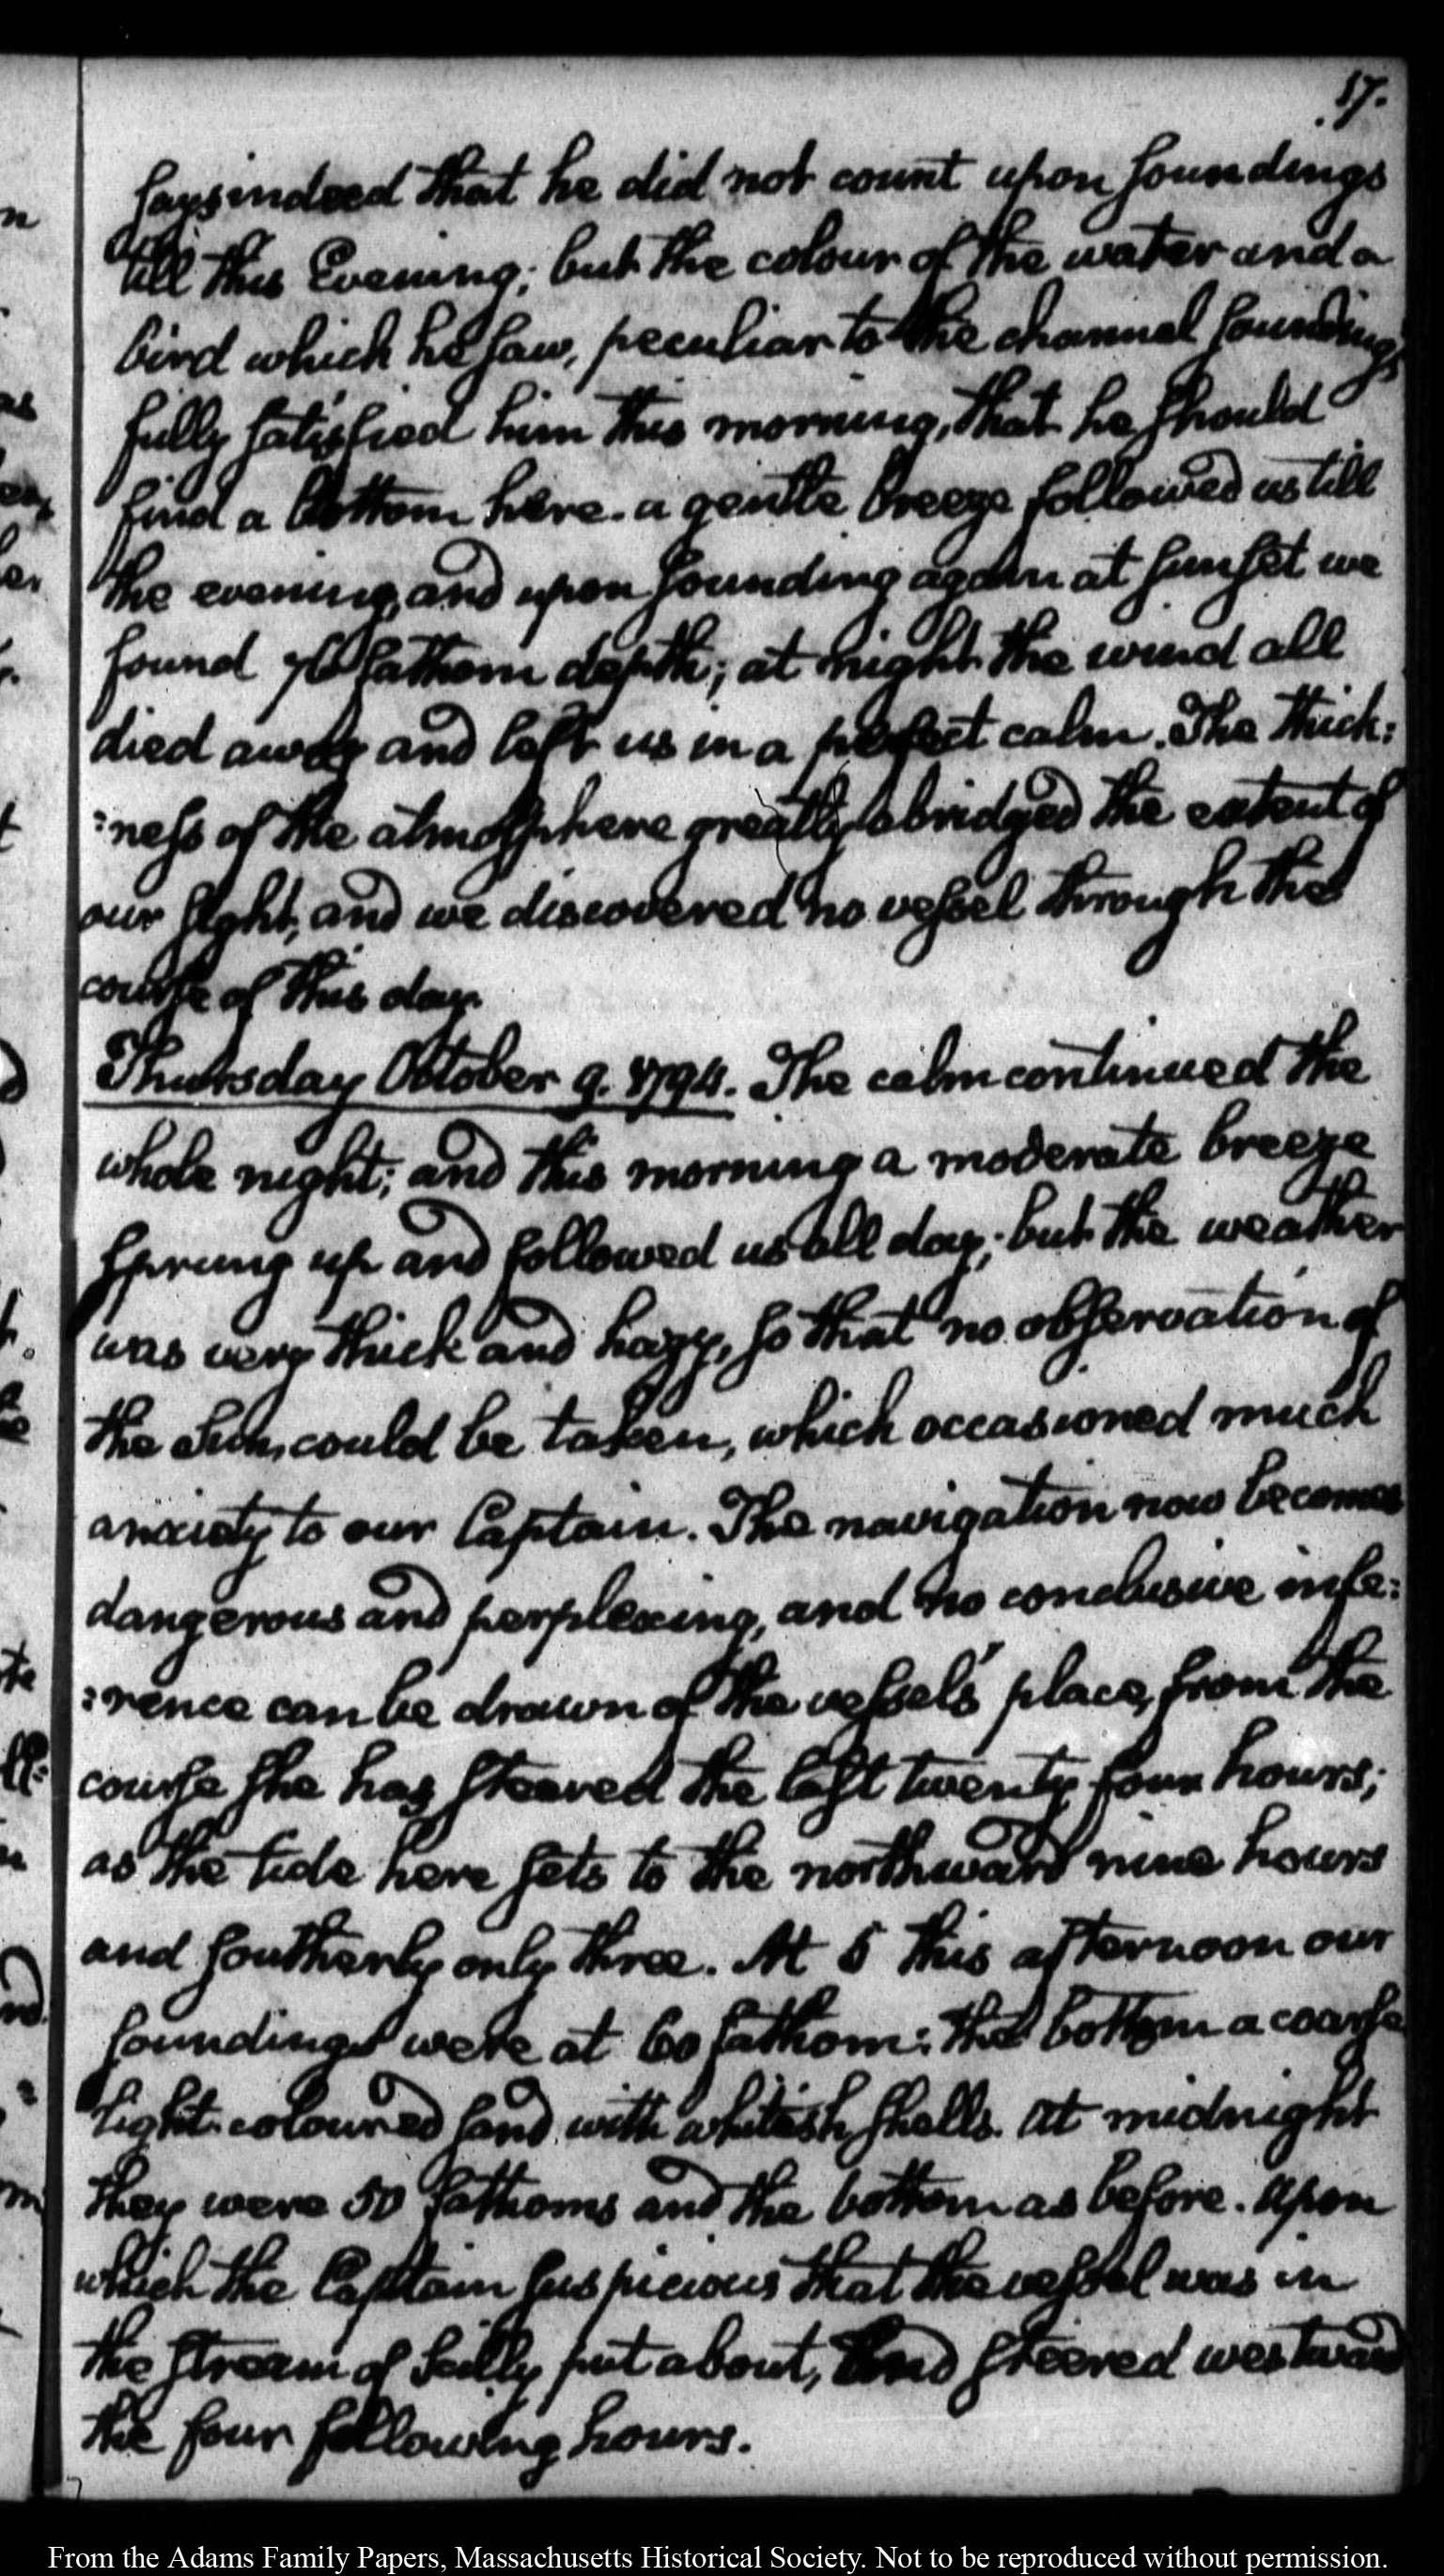 17.
says indeed that he did not count upon soundings
till this Evening; but the colour of the water and a
bird which he saw, peculiar to the channel soundings
fully satisfied him this morning, that he should
find a bottom here. a gentle breeze followed us till
the evening, and upon sounding again at sunset we
found 76 fathom depth; at night the wind all
died away and left us in a perfect calm. The thick:
:ness of the atmosphere greatly abridged the extent of
our sight, and we discovered no vessel through the
course of this day.
Thursday October 9. 1794. The calm continued the
whole night; and this morning a moderate breeze
sprung up and followed us all day; but the weather
was very thick and hazy, so that no observation of
the Sun, could be taken, which occasioned much
anxiety to our Captain. The navigation now becomes
dangerous and perplexing, and no conclusive infe:
:rence can be drawn of the vessels' place, from the
course she has steered the last twenty four hours;
as the tide here sets to the northward nine hours
and southerly only three. At 5 this afternoon our
soundings were at 60 fathom: the bottom a coarse
light coloured sand with whitish shells. At midnight
they were 50 fathoms and the bottom as before. Upon
which the Captain suspicious that the vessel was in
the stream of Scilly put about, and steered westward
the four following hours.
From the Adams Family Papers, Massachusetts Historical Society. Not to be reproduced without permission.